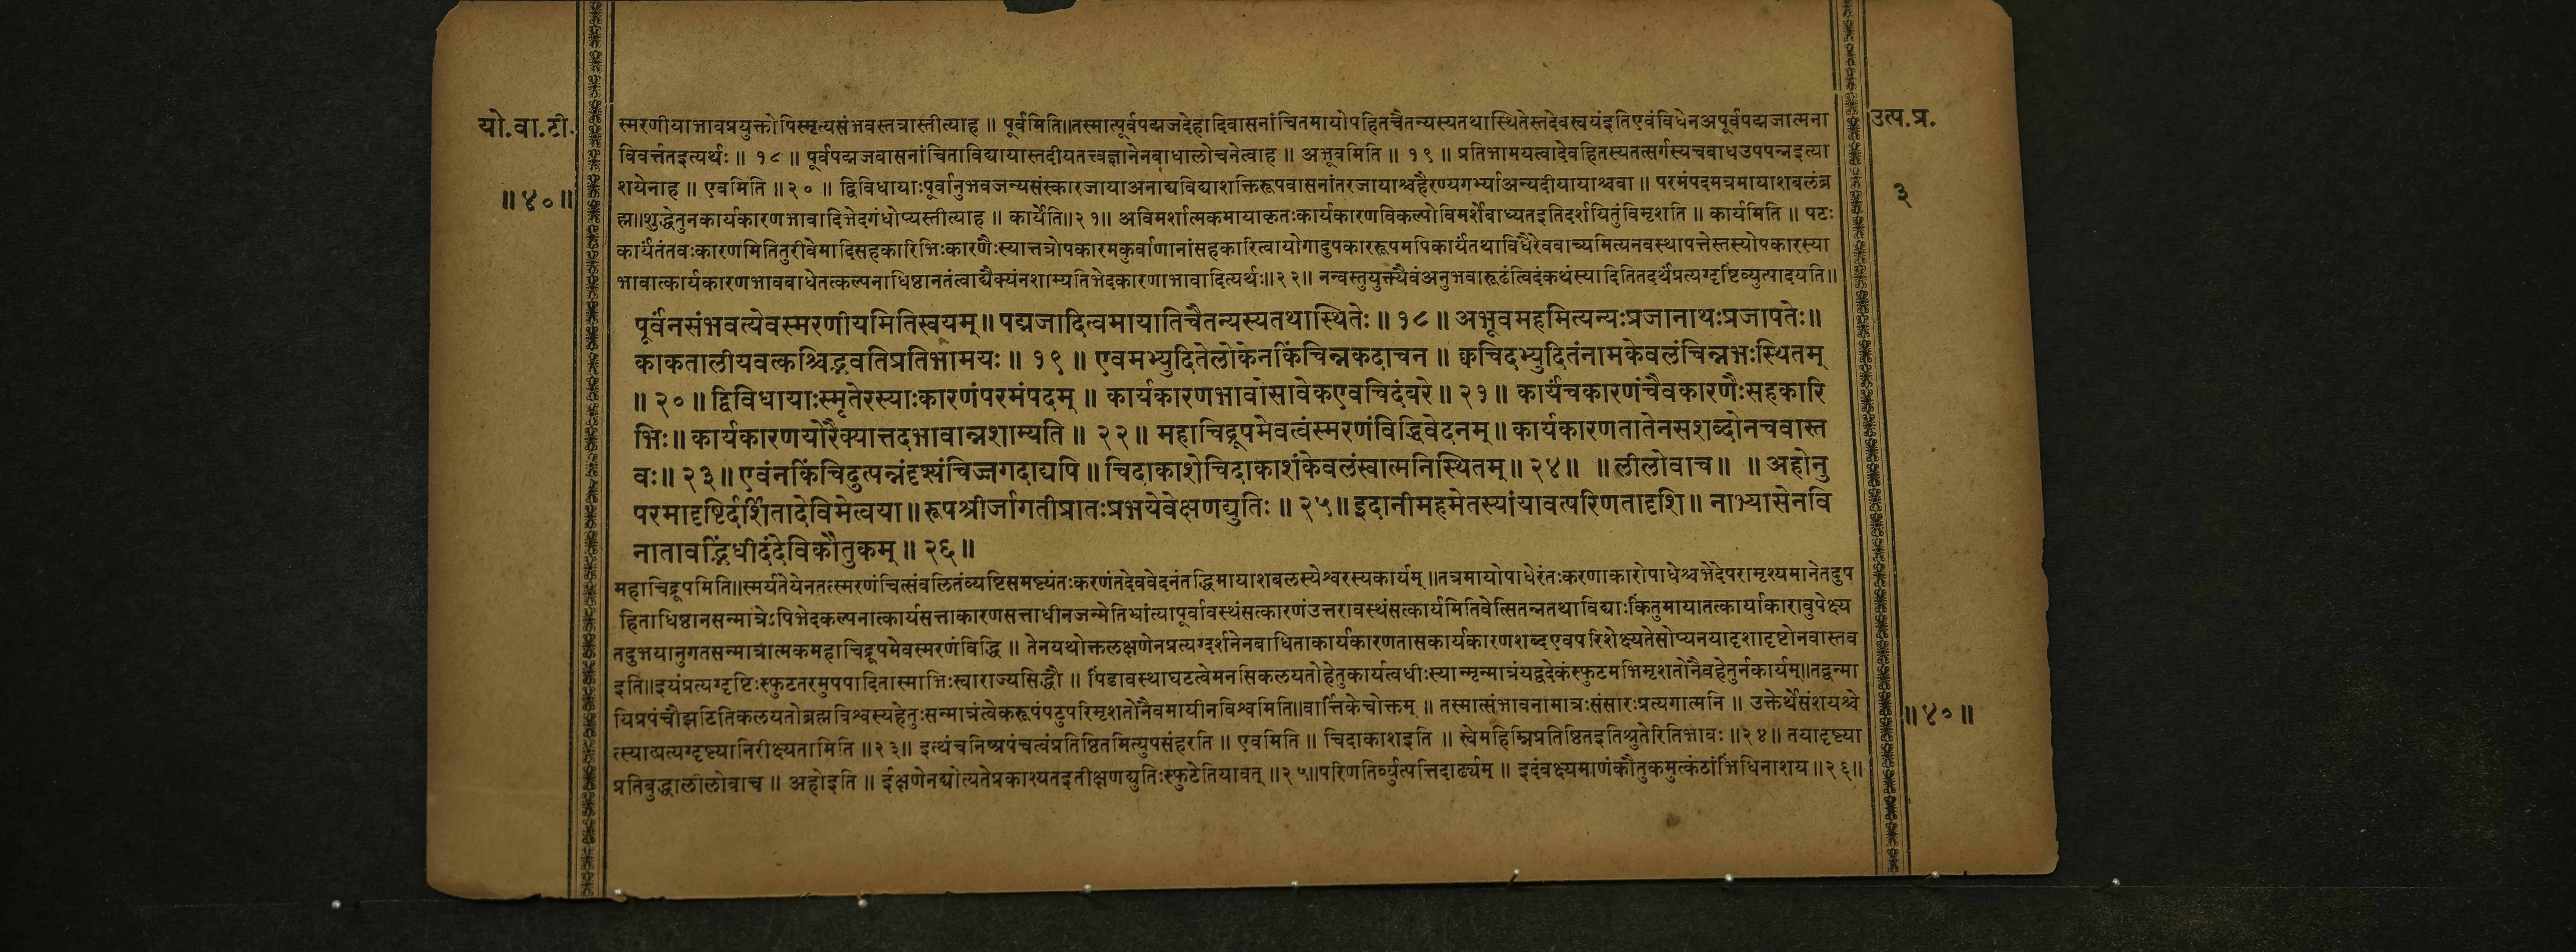 यो.वा.टी.
॥४०॥
उत्प.प्र.
३
स्मरणीयाभावप्रयुक्तोपिस्मृत्यसंभवस्तत्रास्तीत्याह ॥ पूर्वमिति॥तस्मात्पूर्वपद्मजदेहादिवासनांचितमायोपहितचैतन्यस्यतथास्थितेस्तदेवस्वयंइतिएवंविधेनअपूर्वपद्मजात्मना
विवर्त्ततइत्यर्थः ॥ १८ ॥ पूर्वपद्मजवासनांचिताविद्यायास्तदीयतत्त्वज्ञानेनबाधालोचनेत्वाह ॥ अभूवमिति ॥ १९ ॥ प्रतिभामयत्वादेवहितस्यतत्सर्गस्यचबाधउपपन्नइत्या
शयेनाह ॥ एवमिति ॥२० ॥ द्विविधायाःपूर्वानुभवजन्यसंस्कारजायाअनाद्यविद्याशक्तिरूपवासनांतरजायाश्चहैरण्यगर्भ्याअन्यदीयायाश्चवा ॥ परमंपदमत्रमायाशबलंब्र
ह्म॥शुद्धेतुनकार्यकारणभावादिभेदगंधोप्यस्तीत्याह ॥ कार्येति॥२१॥ अविमर्शात्मकमायाकृतःकार्यकारणविकल्पोविमर्शेबाध्यतइतिदर्शयितुंविमृशति ॥ कार्यमिति ॥ पटः
कार्यंतंतवःकारणमितितुरीवेमादिसहकारिभिःकारणैःस्यात्तत्रोपकारमकुर्वाणानांसहकारित्वायोगादुपकाररूपमपिकार्यंतथाविधैरेववाच्यमित्यनवस्थापत्तेस्तस्योपकारस्या
भावात्कार्यकारणभावबाधेतत्कल्पनाधिष्ठानतंत्वाद्यैक्यंनशाम्यतिभेदकारणाभावादित्यर्थः॥२२॥ नन्वस्तुयुक्त्यैवंअनुभवारूढंत्विदंकथंस्यादितितदर्थंप्रत्यग्दृष्टिंव्युत्पादयति॥
पूर्वंनसंभवत्येवस्मरणीयमितिस्वयम्॥ पद्मजादित्वमायातिचैतन्यस्यतथास्थितेः ॥ १८ ॥ अभूवमहमित्यन्यःप्रजानाथःप्रजापतेः॥
काकतालीयवत्कश्चिद्भवतिप्रतिभामयः ॥ १९ ॥ एवमभ्युदितेलोकेनकिंचिन्नकदाचन ॥ क्वचिदभ्युदितंनामकेवलंचिन्नभःस्थितम्
॥ २० ॥ द्विविधायाःस्मृतेरस्याःकारणंपरमंपदम् ॥ कार्यकारणभावोसावेकएवचिदंबरे ॥ २१ ॥ कार्यंचकारणंचैवकारणैःसहकारि
भिः॥ कार्यकारणयोरैक्यात्तदभावान्नशाम्यति ॥ २२ ॥ महाचिद्रूपमेवत्वंस्मरणंविद्धिवेदनम् ॥ कार्यकारणतातेनसशब्दोनचवास्त
वः॥ २३ ॥ एवंनकिंचिदुत्पन्नंदृश्यंचिज्जगदाद्यपि ॥ चिदाकाशेचिदाकाशंकेवलंस्वात्मनिस्थितम्॥ २४॥ ॥ लीलोवाच॥ ॥ अहोनु
परमादृष्टिर्दर्शितादेविमेत्वया॥ रूपश्रीर्जागतीप्रातःप्रभयेवेक्षणद्युतिः ॥ २५॥ इदानीमहमेतस्यांयावत्परिणतादृशि॥ नाभ्यासेनवि
नातावद्भिंधीदंदेविकौतुकम् ॥ २६ ॥
महाचिद्रूपमिति॥स्मर्यतेयेनतत्स्मरणंचित्संवलितंव्यष्टिसमष्ट्यंतःकरणंतदेववेदनंतद्धिमायाशबलस्येश्वरस्यकार्यम् ॥तत्रमायोपाधेरंतःकरणाकारोपाधेश्चभेदेपरामृश्यमानेतदुप
हिताधिष्ठानसन्मात्रेऽपिभेदकल्पनात्कार्यसत्ताकारणसत्ताधीनजन्मेतिभ्रांत्यापूर्वावस्थंसत्कारणंउत्तरावस्थंसत्कार्यमितिवेत्सितन्नतथाविद्याःकिंतुमायातत्कार्याकारावुपेक्ष्य
तदुभयानुगतसन्मात्रात्मकमहाचिद्रूपमेवस्मरणंविद्धि ॥ तेनयथोक्तलक्षणेनप्रत्यग्दर्शनेनबाधिताकार्यकारणतासकार्यकारणशब्दएवपरिशेक्ष्यतेसोप्यनयादृशादृष्टोनवास्तव
इति॥इयंप्रत्यग्दृष्टिःस्फुटतरमुपपादितास्माभिःस्वाराज्यसिद्धौ ॥ पिंडावस्थाघटत्वेमनसिकलयतोहेतुकार्यत्वधीःस्यान्मृन्मात्रंयद्वदेकंस्फुटमभिमृशतोनैवहेतुर्नकार्यम्॥तद्वन्मा
यिप्रपंचौझटितिकलयतोब्रह्मविश्वस्यहेतुःसन्मात्रंत्वेकरूपंपटुपरिमृशतोनैवमायीनविश्वमिति॥वार्त्तिकेचोक्तम् ॥ तस्मात्संभावनामात्रःसंसारःप्रत्यगात्मनि ॥ उक्तेर्थेसंशयश्चे
त्स्यात्प्रत्यग्दृष्ट्यानिरीक्ष्यतामिति ॥२३॥ इत्थंचनिष्प्रपंचत्वंप्रतिष्ठितमित्युपसंहरति ॥ एवमिति ॥ चिदाकाशइति ॥ स्वेमहिम्निप्रतिष्ठितइतिश्रुतेरितिभावः ॥२४॥ तयादृष्ट्या
प्रतिबुद्धालीलोवाच ॥ अहोइति ॥ ईक्षणेनद्योत्यतेप्रकाश्यतइतीक्षणद्युतिःस्फुटेतियावत् ॥२५॥परिणतिर्व्युत्पत्तिदार्ढ्यम् ॥ इदंवक्ष्यमाणंकौतुकमुत्कंठांभिंधिनाशय॥२६॥
॥४०॥